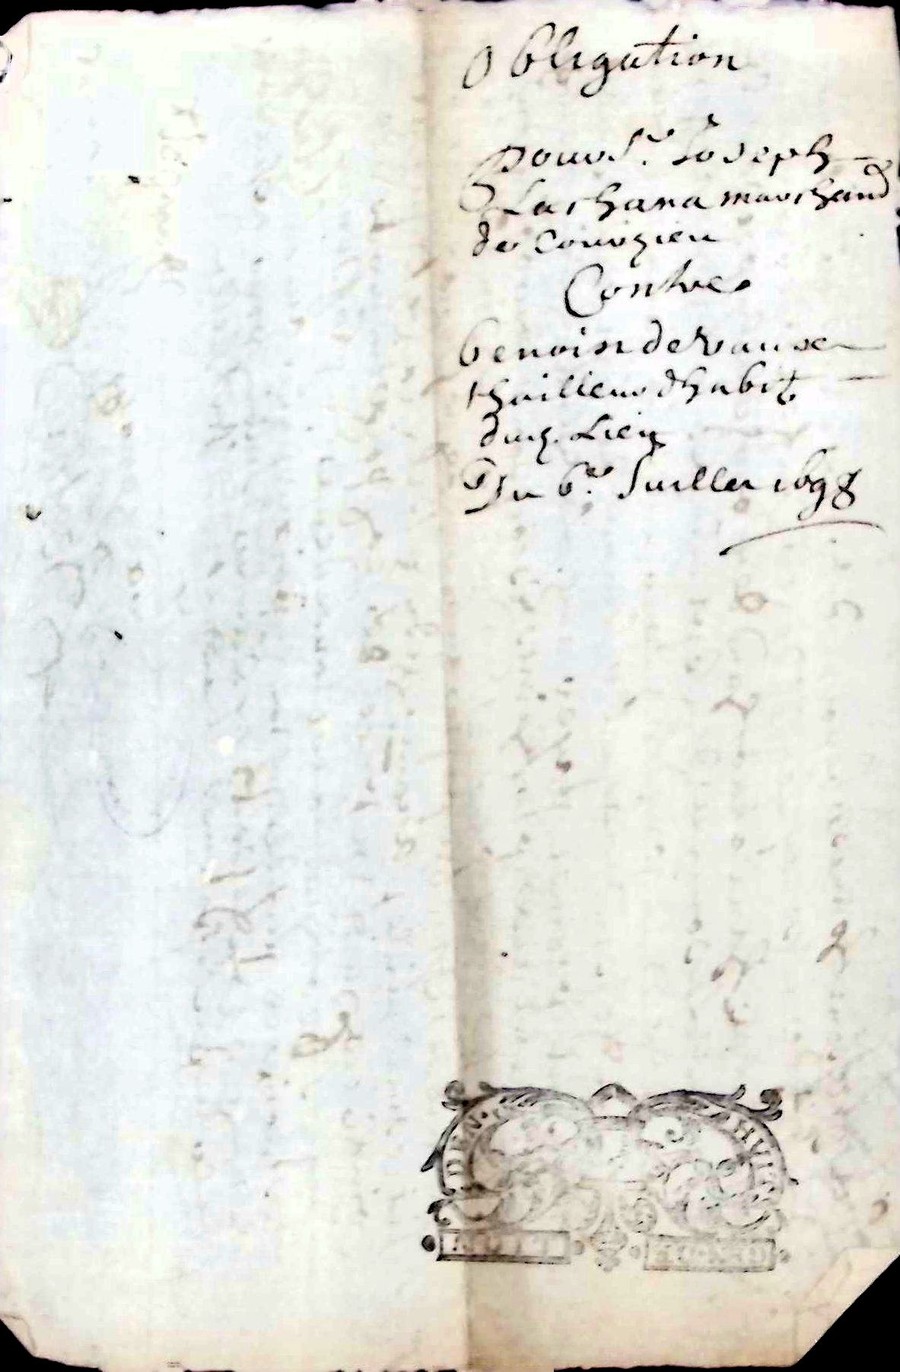 Obligation
Pour Sr. Joseph
Lachana marchand
de Courzieu
Contre
benoist de Vause
thailleur dhabit
dud. Lieu
Du 6e. Juillet 1698
DEN.
HVIT